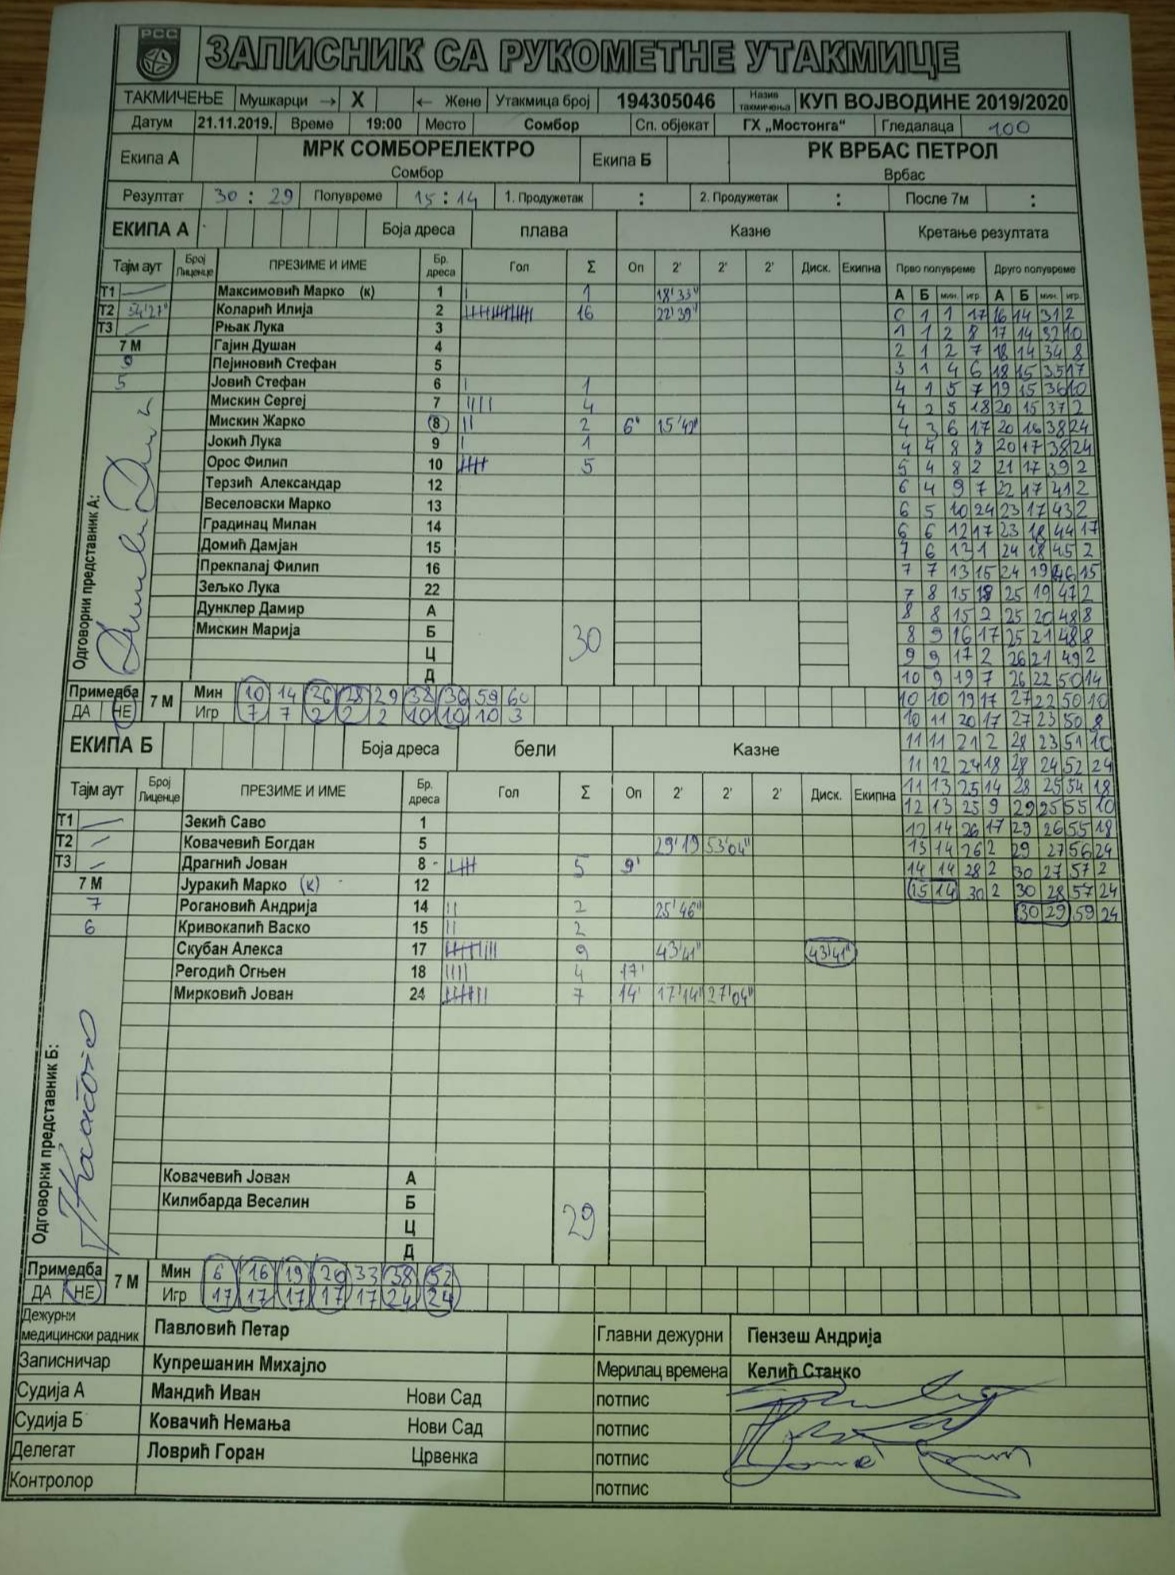 РСС
ЗАПИСНИК СА РУКОМЕТНЕ УТАКМИЦЕ
ТАКМИЧЕЊЕ Мушкарци → X ← Жене Утакмица број 194305046 Назив такмичења КУП ВОЈВОДИНЕ 2019/2020
Датум 21.11.2019. Време 19:00 Место Сомбор Сп. објекат ГХ „Мостонга“ Гледалаца 100
Екипа А МРК СОМБОРЕЛЕКТРО Екипа Б РК ВРБАС ПЕТРОЛ
Сомбор Врбас
Резултат 30 : 29 Полувреме 15 : 14 1. Продужетак : 2. Продужетак : После 7м :
ЕКИПА А Боја дреса плава Казне Кретање резултата
Тајм аут Број Лиценце ПРЕЗИМЕ И ИМЕ Бр. дреса Гол Σ Оп 2' 2' 2' Диск. Екипна Прво полувреме Друго полувреме
А Б мин. игр. А Б мин. игр.
Т1 Максимовић Марко (к) 1 1 18'33" 0 1 1 17 16 14 31 2
Т2 54'21" Коларић Илија 2 16 22'39" 1 1 2 8 17 14 32 10
Т3 Рњак Лука 3 2 1 2 7 18 14 34 8
7 М Гајин Душан 4 3 1 4 6 18 15 35 17
9 Пејиновић Стефан 5 4 1 5 7 19 15 36 10
5 Јовић Стефан 6 1 4 2 5 18 20 15 37 2
Мискин Сергеј 7 4 4 3 6 17 20 16 38 24
Мискин Жарко 8 2 6' 15'42" 4 4 8 8 20 17 38 24
Јокић Лука 9 1 5 4 8 2 21 17 39 2
Орос Филип 10 5 6 4 9 7 22 17 41 2
Терзић Александар 12 6 5 10 24 23 17 43 2
Веселовски Марко 13 6 6 12 17 23 18 44 17
Градинац Милан 14 7 6 13 1 24 18 45 2
Домић Дамјан 15 7 7 13 15 24 19 46 15
Прекпалај Филип 16 7 8 15 18 25 19 47 2
Зељко Лука 22 8 8 15 2 25 20 48 8
Дунклер Дамир А 8 9 16 17 25 21 48 8
Мискин Марија Б 30 9 9 17 2 26 21 49 2
Ц 10 9 19 7 26 22 50 14
Д 10 10 19 17 27 22 50 10
Одговорни представник А:
Примедба 7 М Мин 10 14 26 28 29 38 36 59 60 10 11 20 17 27 23 50 8
ДА НЕ Игр 7 7 2 2 2 10 10 10 3 11 11 21 2 28 23 51 10
ЕКИПА Б Боја дреса бели Казне 11 12 24 18 28 24 52 24
Тајм аут Број Лиценце ПРЕЗИМЕ И ИМЕ Бр. дреса Гол Σ Оп 2' 2' 2' Диск. Екипна 11 13 25 14 28 25 54 18
12 13 25 9 29 25 55 10
Т1 Зекић Саво 1 12 14 26 17 29 26 55 18
Т2 Ковачевић Богдан 5 29'19 53'04" 13 14 26 2 29 27 56 24
Т3 Драгнић Јован 8 5 9' 14 14 28 2 30 27 57 2
7 М Јуракић Марко (к) 12 15 14 30 2 30 28 57 24
7 Рогановић Андрија 14 2 25'46" 30 29 59 24
6 Кривокапић Васко 15 2
Скубан Алекса 17 9 43'41" 43'41"
Регодић Огњен 18 4 17'
Мирковић Јован 24 7 14' 17'14" 27'04"
Одговорки представник Б:
Ковачевић Јован А
Килибарда Веселин Б 29
Ц
Д
Примедба 7 М Мин 6 16 19 20 33 38 52
ДА НЕ Игр 17 17 17 17 17 24 24
Дежурни медицински радник Павловић Петар Главни дежурни Пензеш Андрија
Записничар Купрешанин Михајло Мерилац времена Келић Станко
Судија А Мандић Иван Нови Сад потпис
Судија Б Ковачић Немања Нови Сад потпис
Делегат Ловрић Горан Црвенка потпис
Контролор потпис